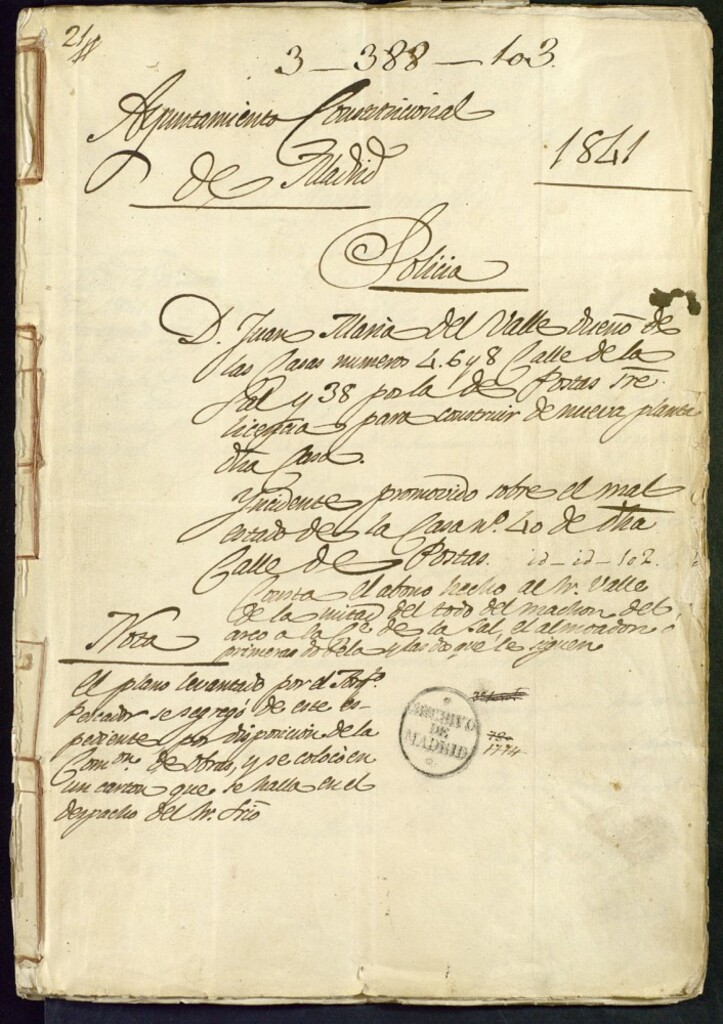 3 - 388 - 103.
Ayuntamiento Constitucional
de Madrid
1841
Policia
D. Juan Maria del Valle dueño de
las Casas numeros 4. 6 y 8 Calle de la
Sal y 38 por la de Postas sre.
licencia para construir de nueva planta
dha Casa.
Yncidente promovido sobre el mal
estado de la Casa nº. 40 de dha
Calle de Postas. id - id - 102.
Consta el abono hecho al Sr. Valle
de la mitad del todo del machon del
arco a la Ce. de la Sal, el almoadon
primera dobela y las do que le siguen
Nota
el plano levantado por el Arqº.
Pescador se segregó de este es-
pediente por disposicion de la
Comon. de obras, y se colocó en
un carton que se halla en el
despacho del Sr. Srio
ARCHIVO
DE
MADRID
1774